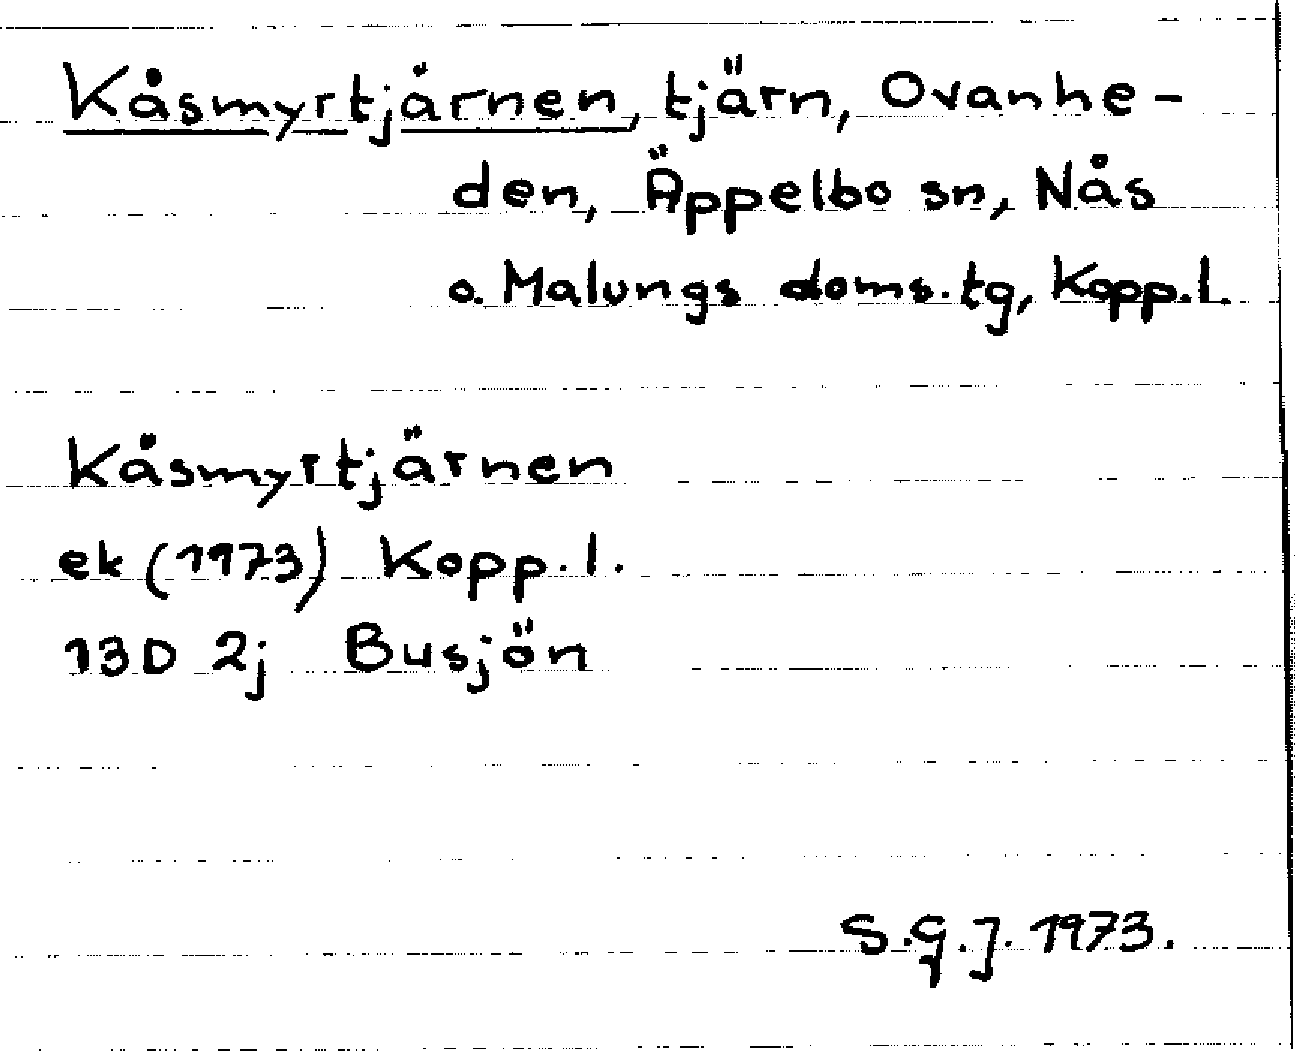 Kåsmyrtjärnen, tjärn, Ovanhe-
den, Äppelbo sn, Nås
o. Malungs doms.tg, Kopp.l.
Kåsmyrtjärnen
ek (1973) Kopp.l.
13D 2j Busjön
S.G.J. 1973.